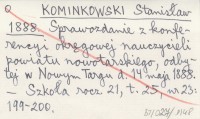 O KOMINKOWSKI Stanisław
1888. Sprawozdanie z konfe-
rencyi okręgowej nauczycieli
powiatu nowotarskiego, odby-
tej w Nowym Targu d. 14 maja 1888.
— Szkoła rocz. 21, t. 25, nr 23:
199-200.